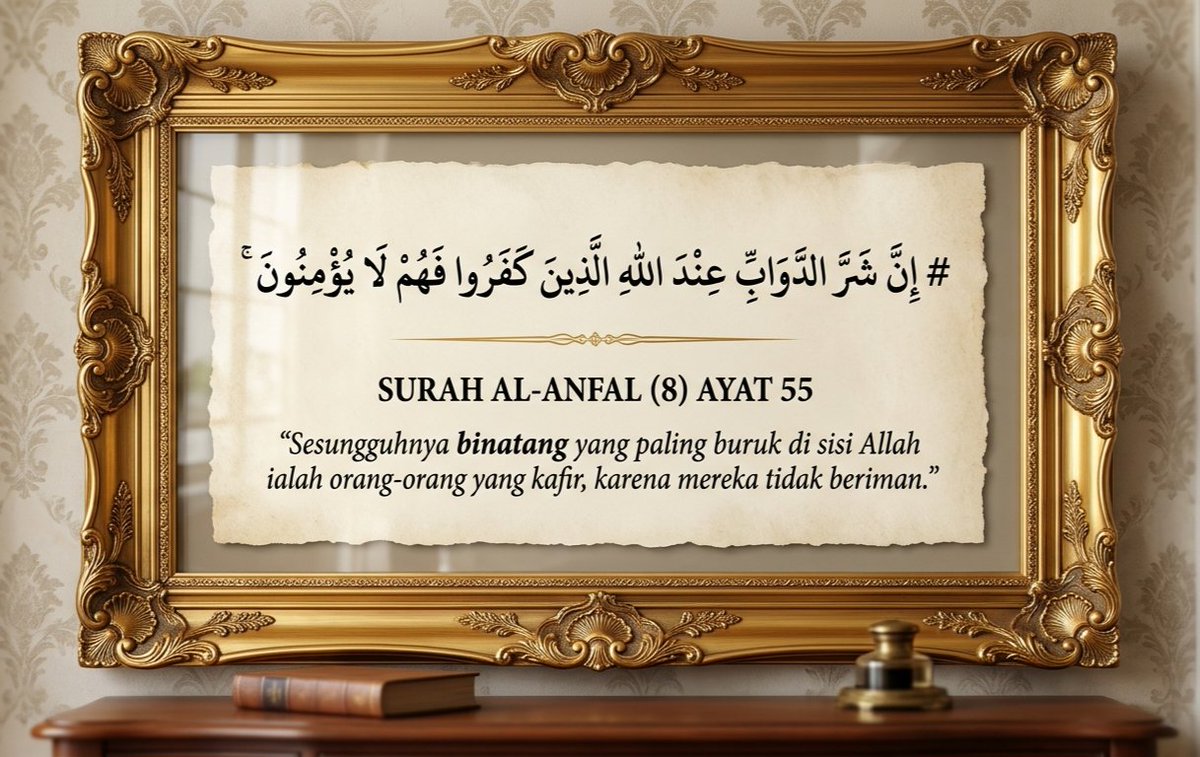 # إِنَّ شَرَّ الدَّوَابِّ عِنْدَ اللهِ الَّذِينَ كَفَرُوا فَهُمْ لَا يُؤْمِنُونَ ۚ
SURAH AL-ANFAL (8) AYAT 55
“Sesungguhnya binatang yang paling buruk di sisi Allah
ialah orang-orang yang kafir, karena mereka tidak beriman.”